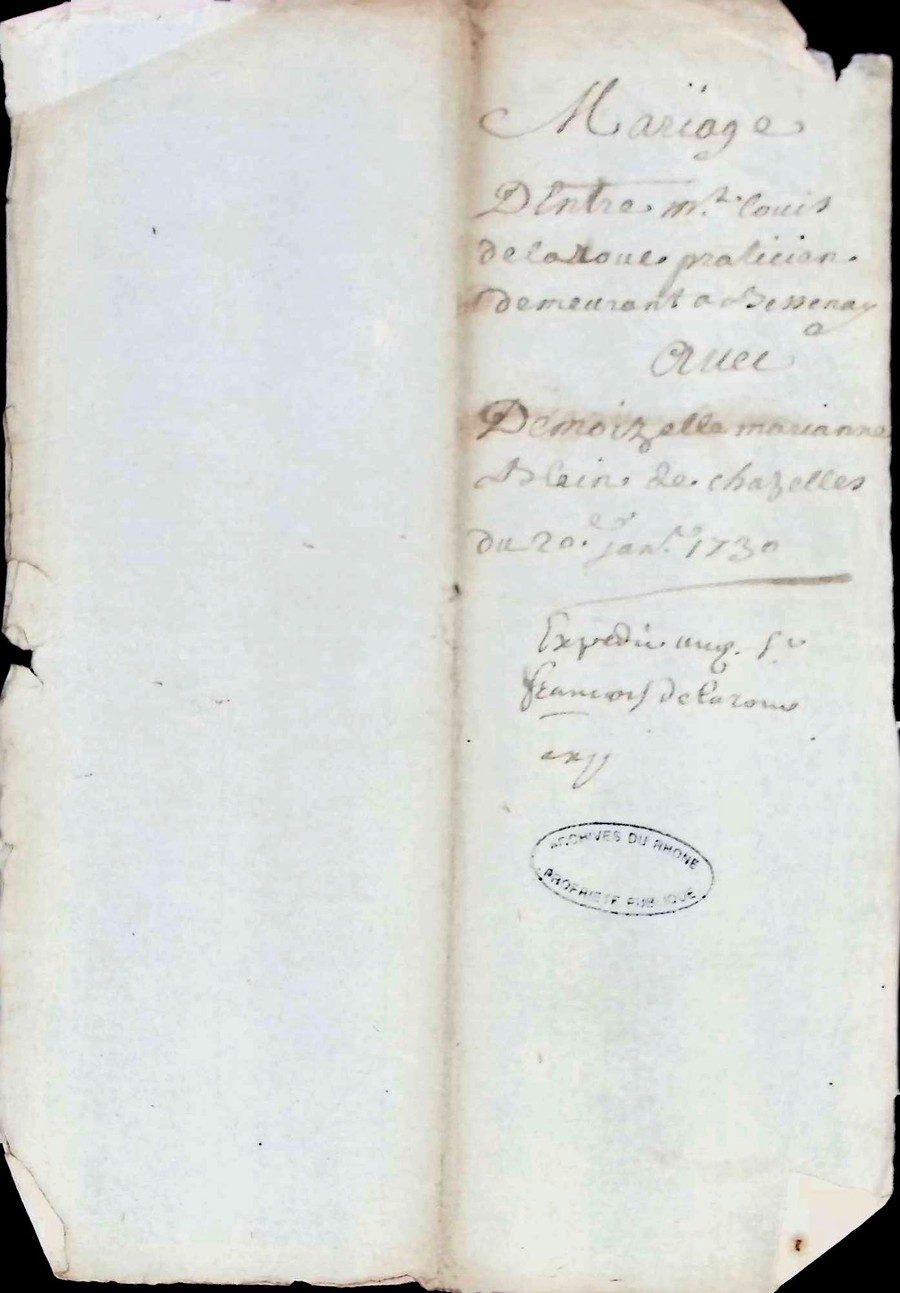 Mariage
DEntre m.e louis
delaRoue praticien
demeurant a Bessenay
Avec
Demoizelle marianne
Blein de chazelles
du 20.e janer. 1730
Expedié aud. sr
françois Delaroue
ARCHIVES DU RHONE
PROPRIETE PUBLIQUE